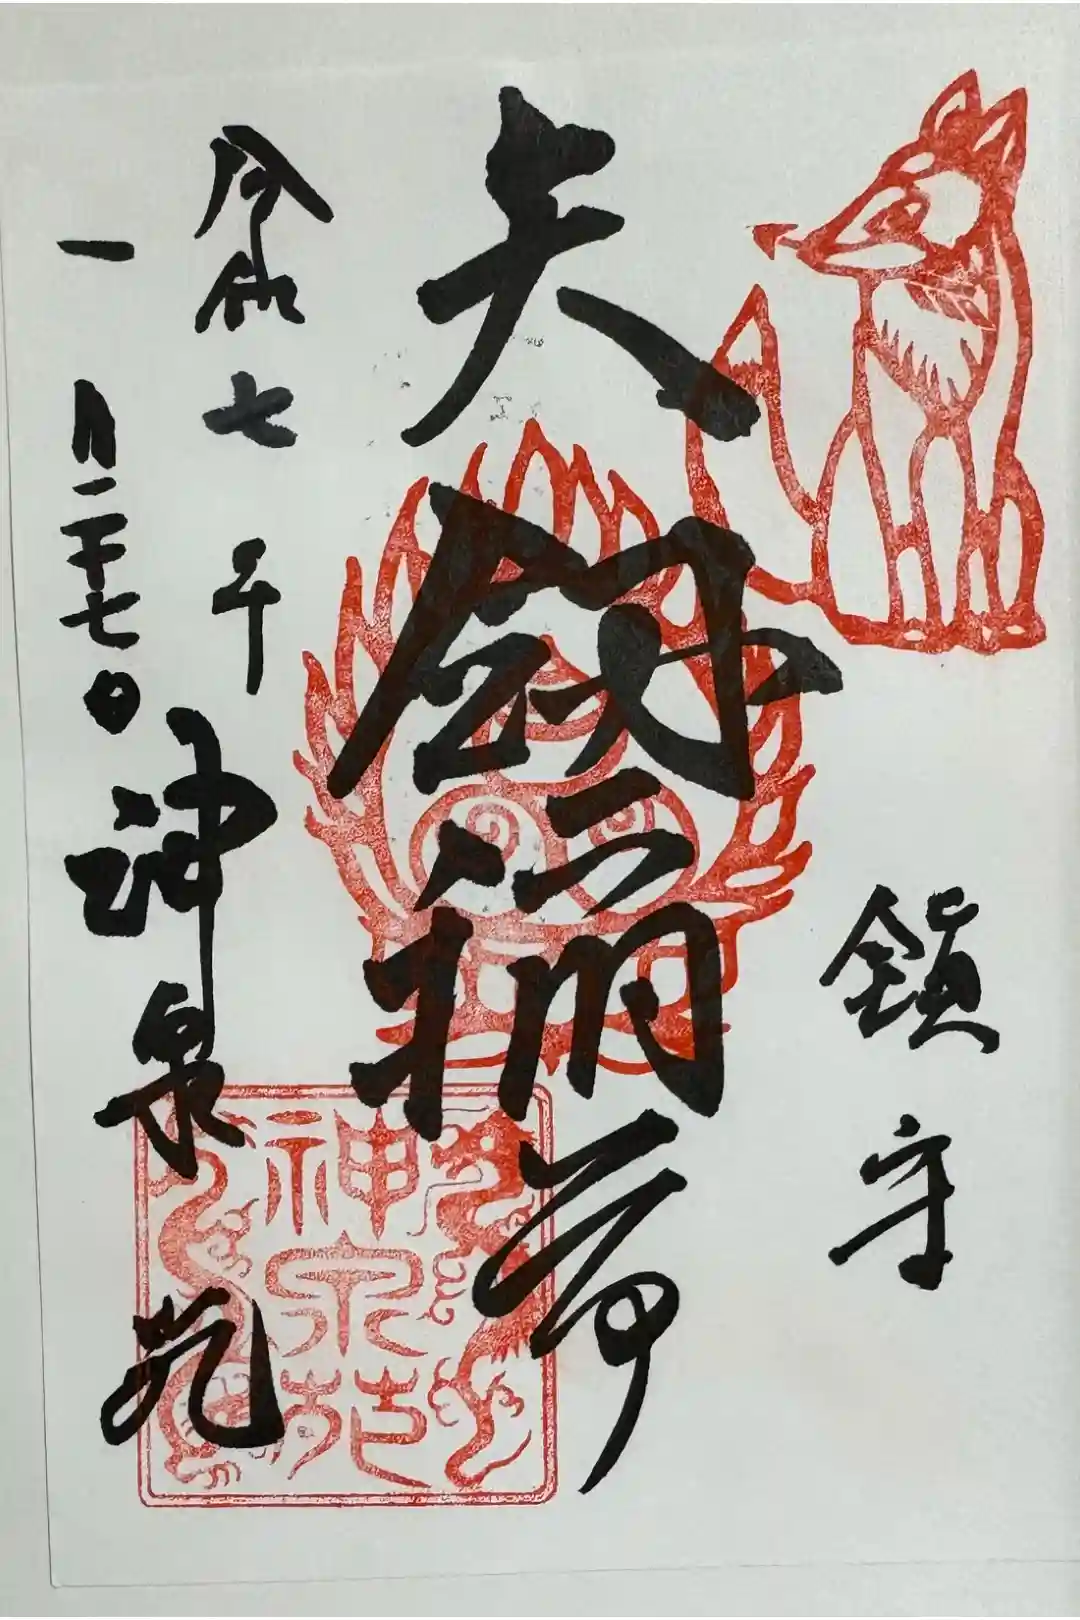 鎮守
矢剱稲荷
令和七年
一月二十七日
神泉苑
神泉苑